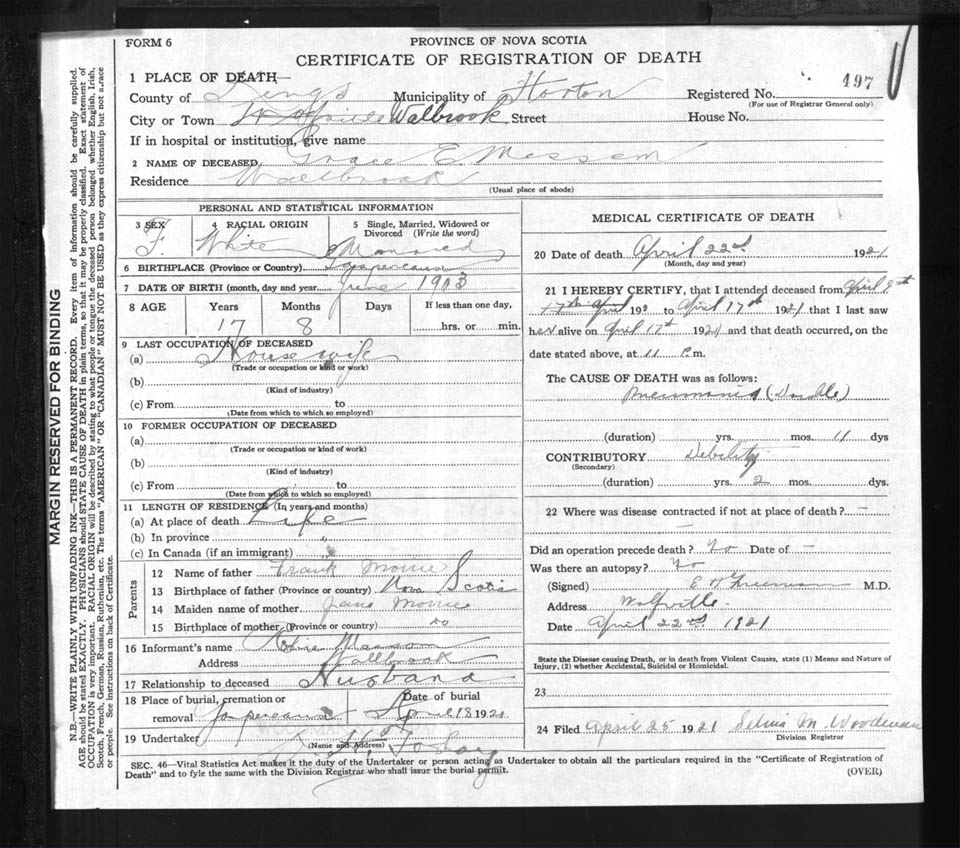 FORM 6
PROVINCE OF NOVA SCOTIA
CERTIFICATE OF REGISTRATION OF DEATH
497
1 PLACE OF DEATH—
County of Kings Municipality of Horton Registered No.
(For use of Registrar General only)
City or Town Wolfville Walbrook Street House No.
If in hospital or institution, give name
2 NAME OF DECEASED Grace E. Messom
Residence Wallbrook
(Usual place of abode)
PERSONAL AND STATISTICAL INFORMATION
3 SEX 4 RACIAL ORIGIN 5 Single, Married, Widowed or Divorced (Write the word)
F. White Married
6 BIRTHPLACE (Province or Country) Gaspereaux
7 DATE OF BIRTH (month, day and year) June 1903
8 AGE Years Months Days If less than one day,
17 8 hrs. or min.
9 LAST OCCUPATION OF DECEASED
(a) Housewife
(Trade or occupation or kind of work)
(b)
(Kind of industry)
(c) From to
(Date from which to which so employed)
10 FORMER OCCUPATION OF DECEASED
(a)
(Trade or occupation or kind of work)
(b)
(Kind of industry)
(c) From to
(Date from which to which so employed)
11 LENGTH OF RESIDENCE (In years and months)
(a) At place of death Life
(b) In province "
(c) In Canada (if an immigrant) "
Parents
12 Name of father Frank
13 Birthplace of father (Province or country) Nova Scotia
14 Maiden name of mother Jane
15 Birthplace of mother (Province or country) do
16 Informant's name
Address Wallbrook
17 Relationship to deceased Husband
18 Place of burial, cremation or removal Gaspereaux Date of burial April 18 1921
19 Undertaker
(Name and Address)
MEDICAL CERTIFICATE OF DEATH
20 Date of death April 22nd 1921
(Month, day and year)
21 I HEREBY CERTIFY, that I attended deceased from April
17th April 192 to April 17th 1921 that I last saw
her alive on April 17th 1921 and that death occurred, on the
date stated above, at 11 P.m.
The CAUSE OF DEATH was as follows:
Pneumonia (Double)
(duration) yrs. mos. 11 dys
CONTRIBUTORY Debility
(Secondary)
(duration) yrs. 2 mos. dys.
22 Where was disease contracted if not at place of death? —
—
Did an operation precede death? No Date of —
Was there an autopsy? No
(Signed) E H Freeman M.D.
Address Wolfville.
Date April 22nd 1921
State the Disease causing Death, or in death from Violent Causes, state (1) Means and Nature of
Injury, (2) whether Accidental, Suicidal or Homicidal.
23
24 Filed April 25 1921 Selina M. Woodman
Division Registrar
SEC. 46—Vital Statistics Act makes it the duty of the Undertaker or person acting as Undertaker to obtain all the particulars required in the "Certificate of Registration of
Death" and to fyle the same with the Division Registrar who shall issue the burial permit.
(OVER)
MARGIN RESERVED FOR BINDING
N.B.—WRITE PLAINLY WITH UNFADING INK—THIS IS A PERMANENT RECORD. Every item of information should be carefully supplied.
AGE should be stated EXACTLY. PHYSICIANS should STATE CAUSE OF DEATH in plain terms, so that it may be properly classified. Exact statement of
OCCUPATION is very important. RACIAL ORIGIN will be described by stating to what people or tongue the deceased person belonged whether English, Irish,
Scotch, French, German, Russian, Ruthenian, etc. The terms "AMERICAN" or "CANADIAN" MUST NOT BE USED as they express citizenship but not a race
or people. See instructions on back of Certificate.